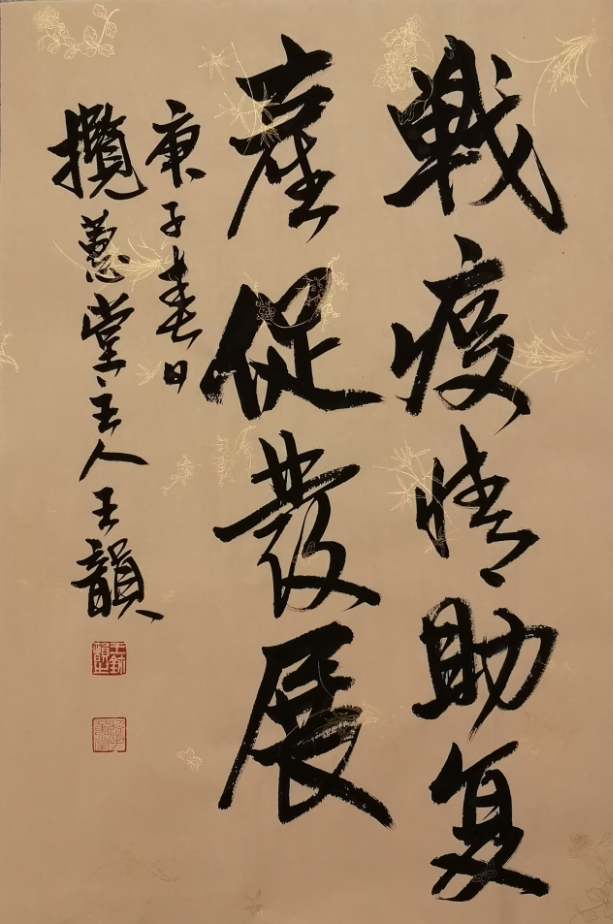 戰疫情助复
產促發展
庚子春日
攬蔥堂主人王韻